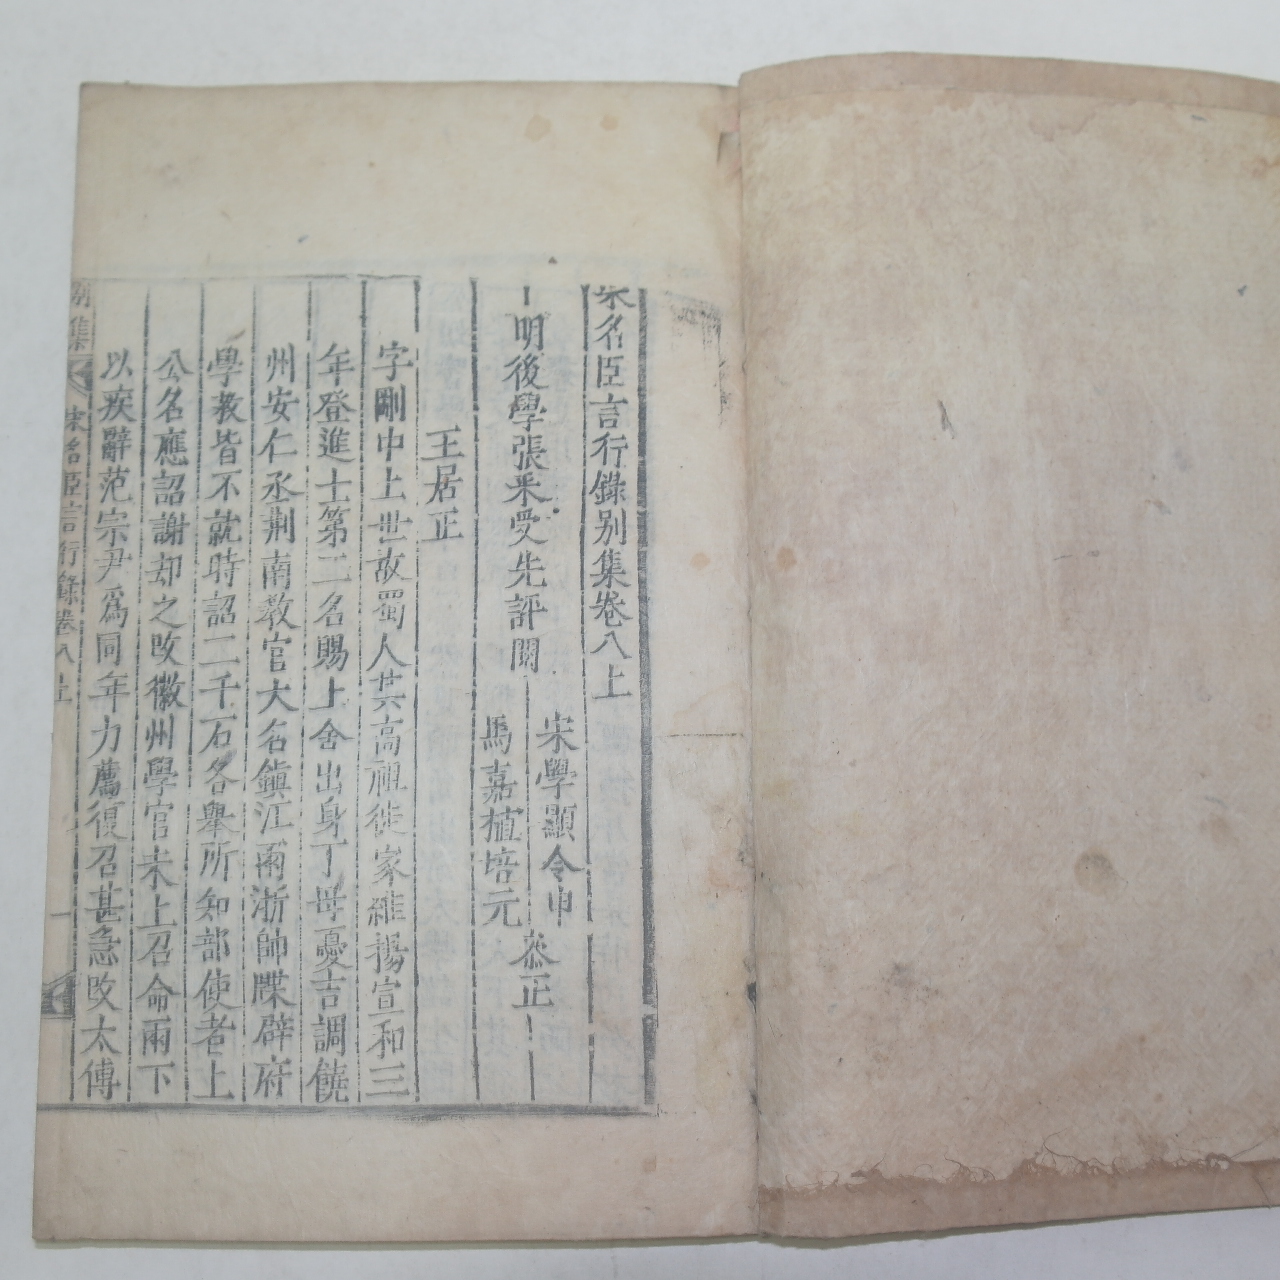 宋名臣言行錄别集卷八上
明後學張采受先評閱
宋學顯令申
馬嘉植培元
叅正
王居正
字剛中上世故蜀人其高祖徙家維揚宣和三
年登進士第二名賜上舍出身丁母憂吉調饒
州安仁丞荆南教官大名鎮江兩浙帥牒辟府
學教皆不就時詔二千石各舉所知部使者上
公名應詔謝却之改徽州學官未上召命兩下
以疾辭范宗尹爲同年力薦復召甚急改太傅
别集
宋名臣言行錄卷八上
一